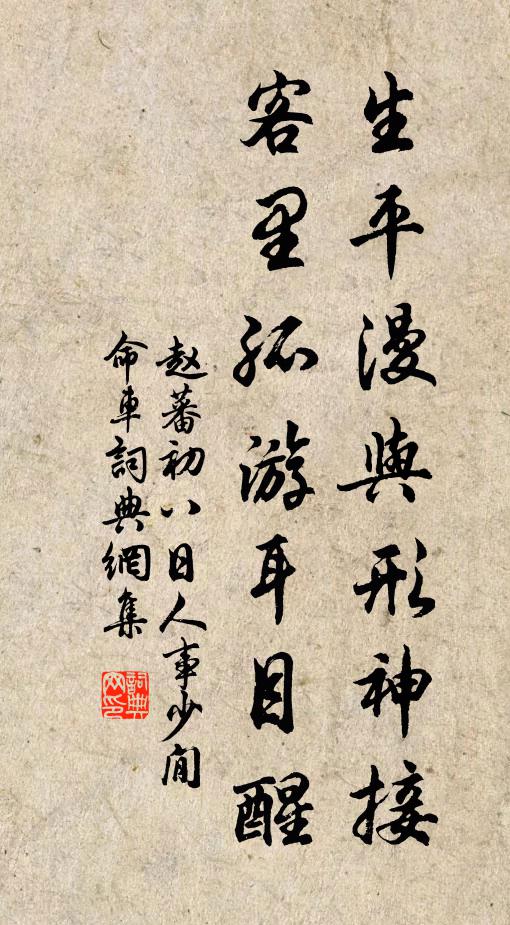 生平漫與形神接
客里孤游耳目醒
赵蕃初八日人事少间
命車詞典網集
詞典
网印